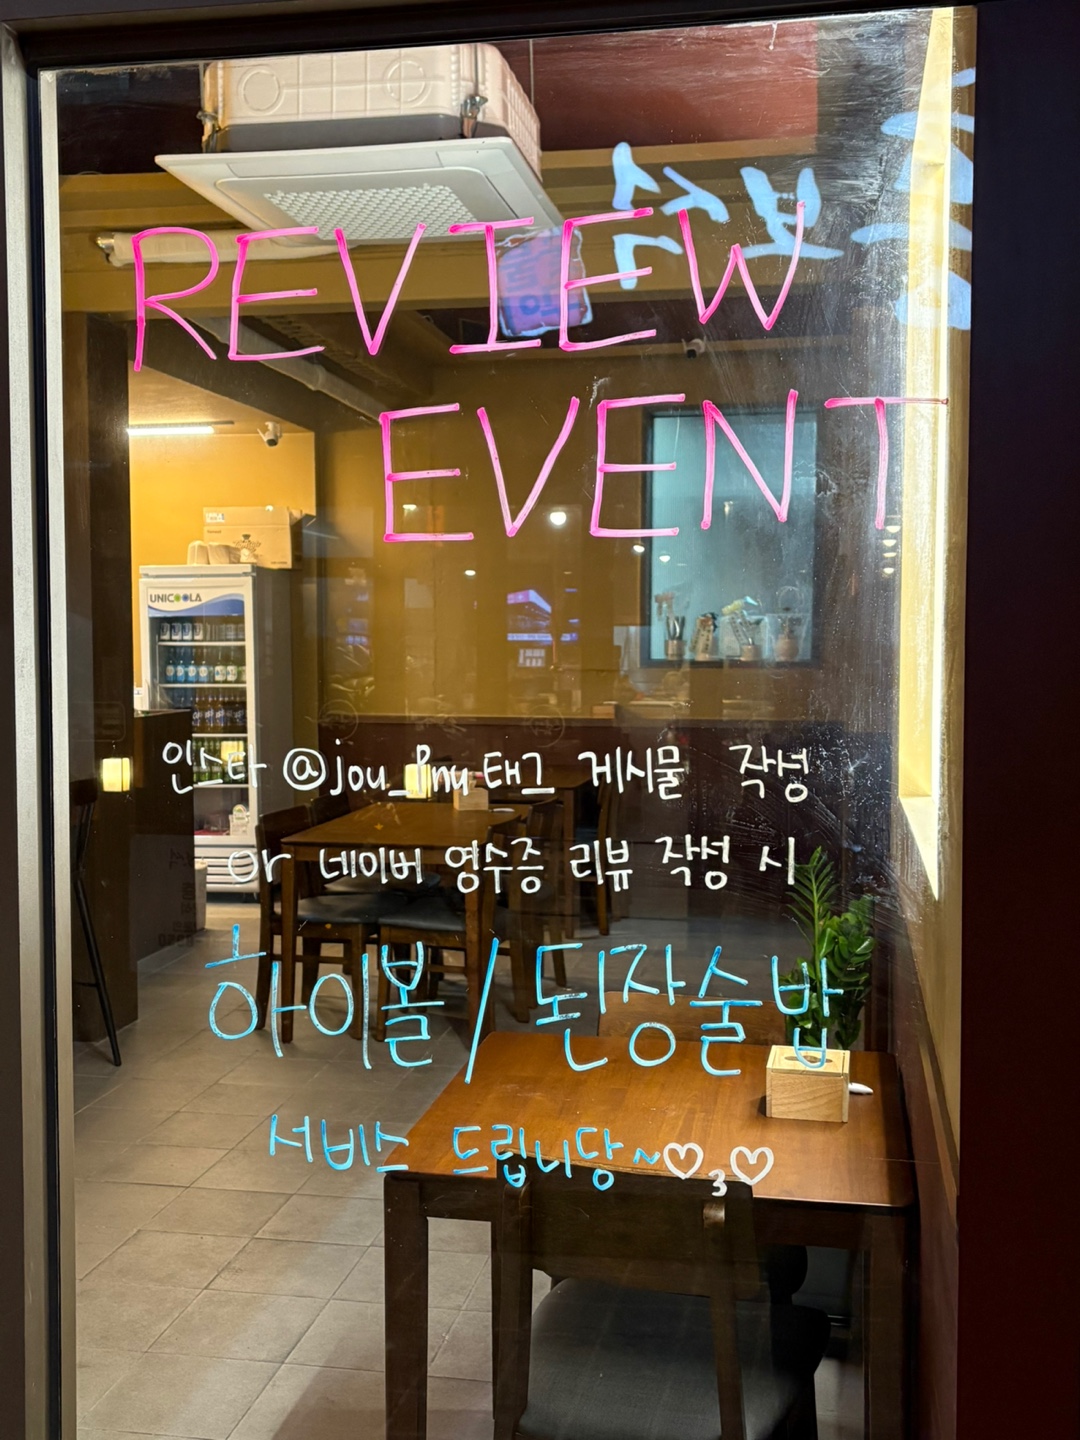 REVIEW
EVENT
UNICOOLA
인스타 @jou_pnu 태그 게시물 작성
or 네이버 영수증 리뷰 작성 시
하이볼 / 된장술밥
서비스 드립니당~♡3♡